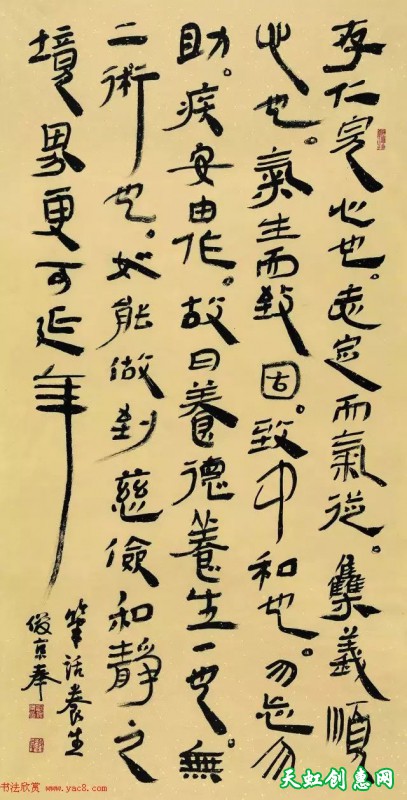 存仁完心也。志定而氣從。集義順
心也。氣生而致固。致中和也。勿忘勿
助。疾安由作。故曰養德養生一也。無
二術也。如能做到慈儉和靜之
境界更可延年
筆話養生
京奉
书法欣赏 www.yac8.com
天虹创惠网